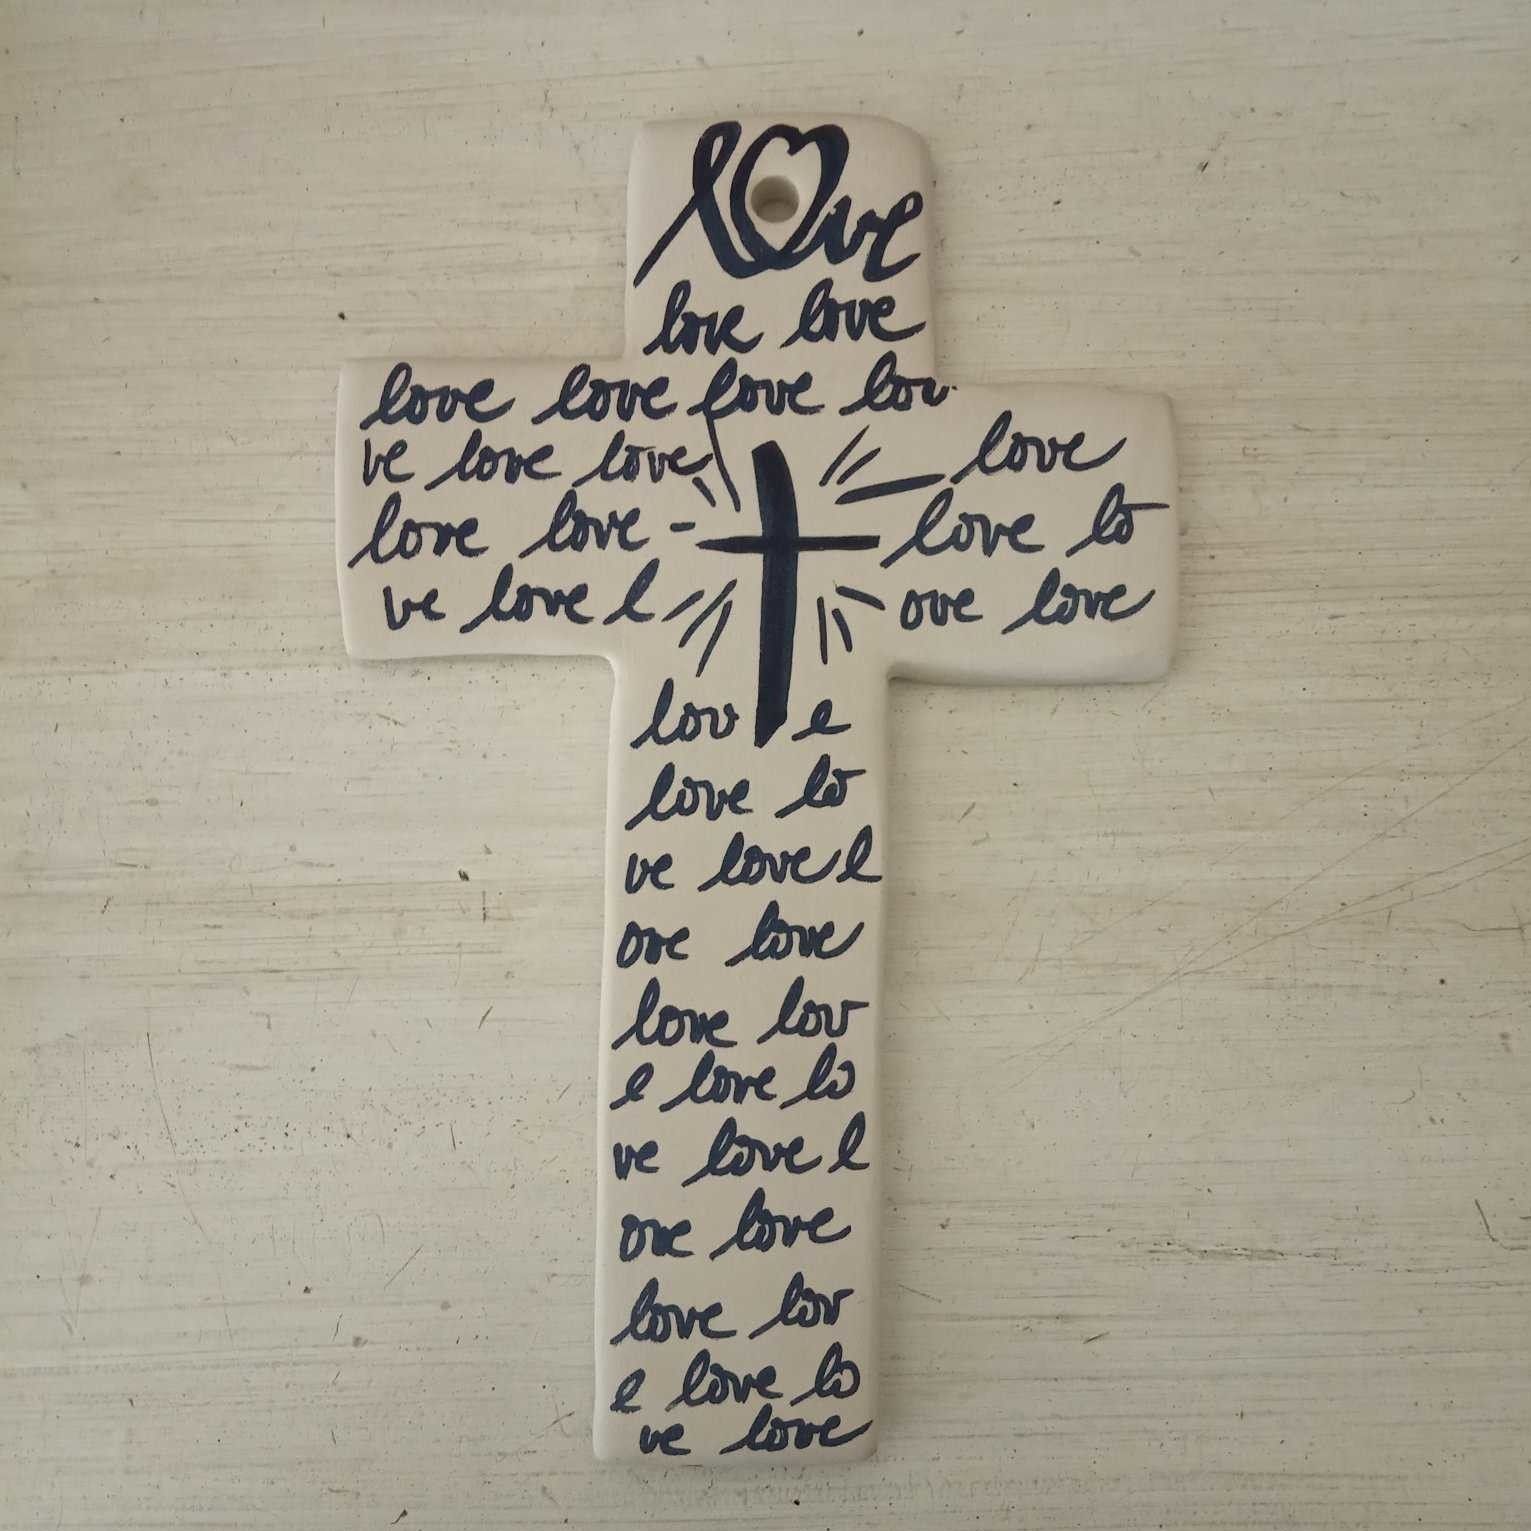 love
love love
love love love lov
ve love love
love
love love
love lo
ve love l
ove love
lov e
love lo
ve love l
ove love
love lov
e love lo
ve love l
ove love
love lov
e love lo
ve love